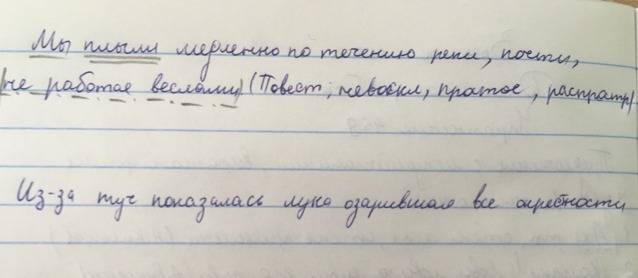 Мы плыли медленно по течению реки, почти,
не работая веслами) (Повест, невоскл, пратое, распратр)
Из-за туч показалась луна озарившая все окрестности